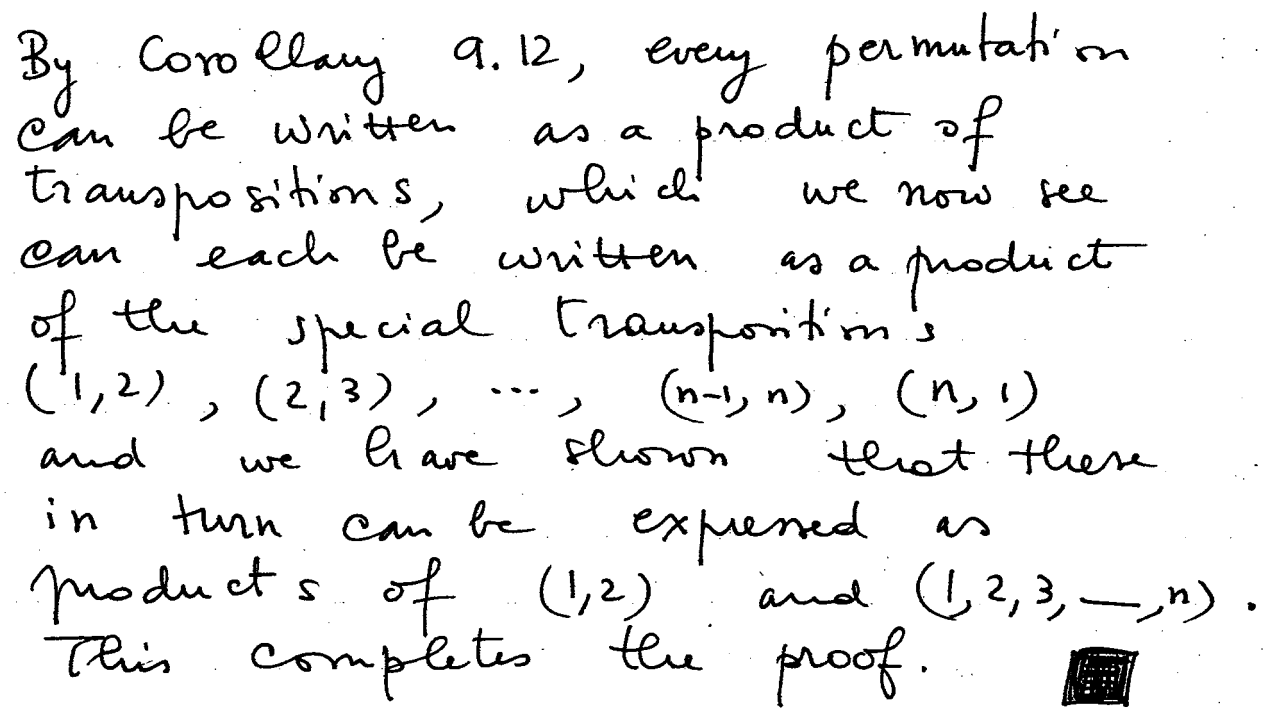 By Corollary 9.12, every permutation
can be written as a product of
transpositions, which we now see
can each be written as a product
of the special transpositions
(1,2), (2,3), ..., (n-1, n), (n, 1)
and we have shown that these
in turn can be expressed as
products of (1,2) and (1,2,3,—,n).
This completes the proof. ■